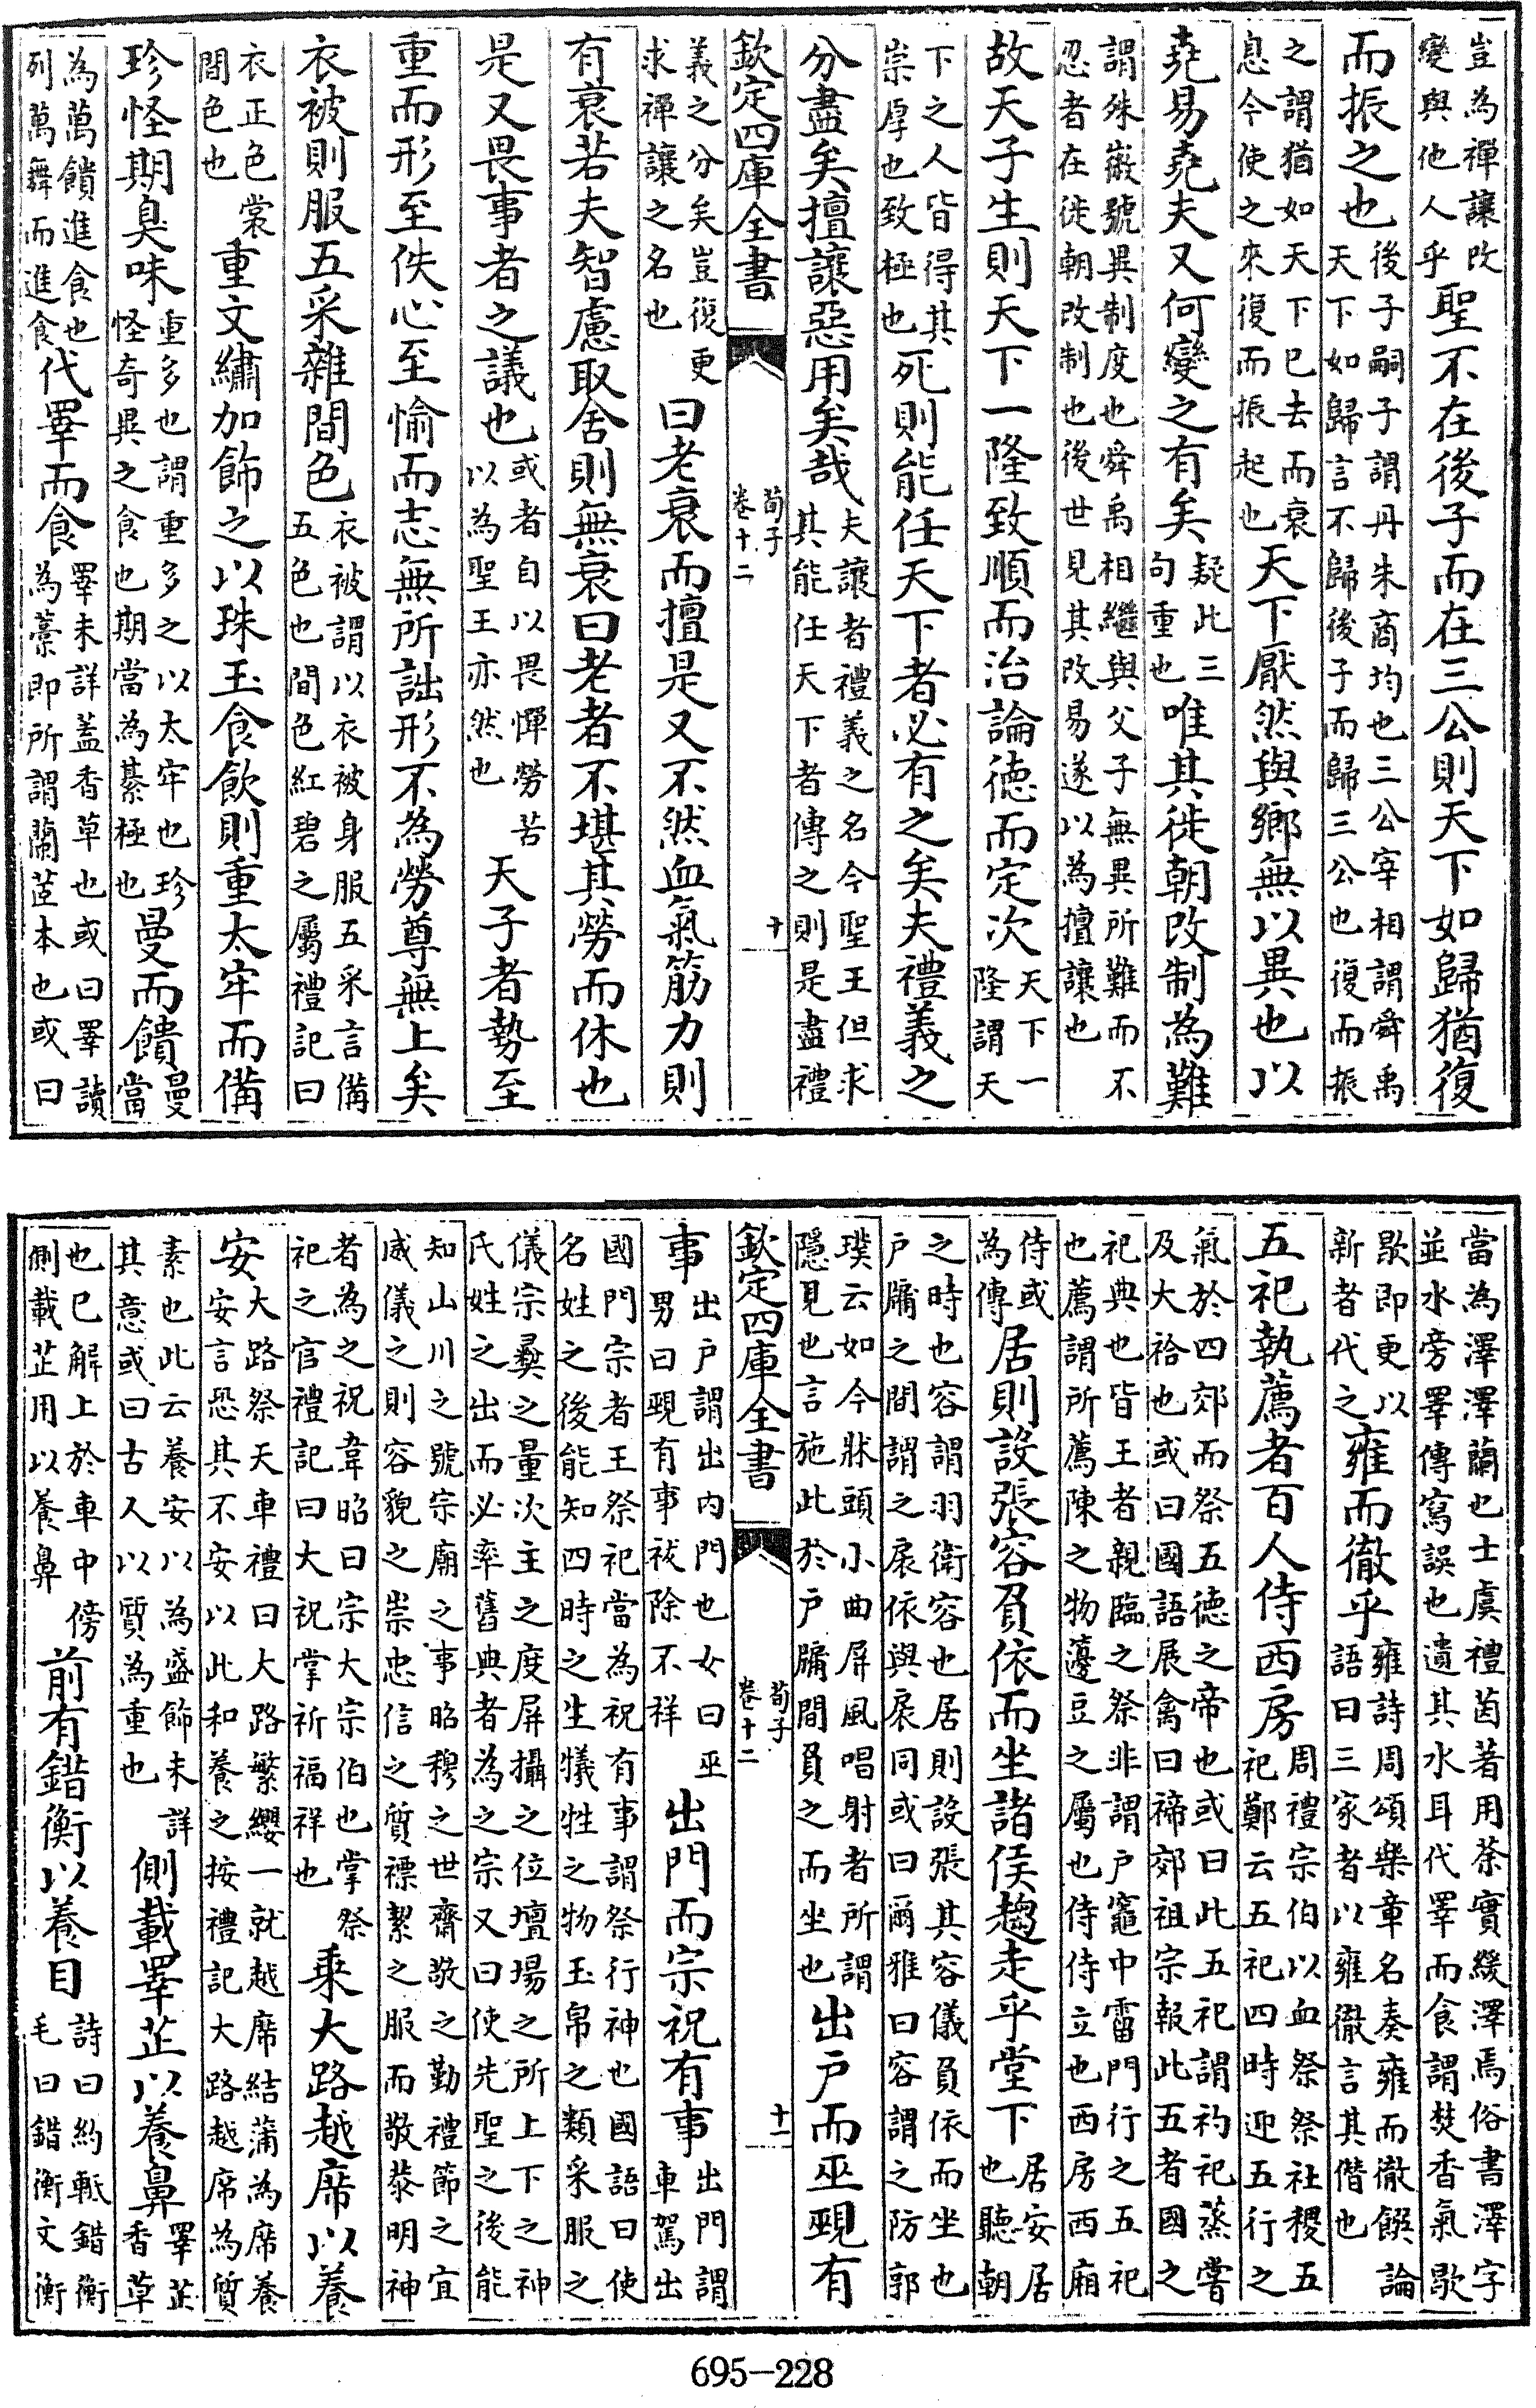 豈為禪讓改變與他人乎聖不在後子而在三公則天下如歸猶復
而振之也後子嗣子謂丹朱商均也三公宰相謂舜禹天下如歸言不歸後子而歸三公也復而振
之謂猶如天下已去而衰息今使之來復而振起也天下厭然與鄉無以異也以
堯易堯夫又何變之有矣疑此三句重也唯其徙朝改制為難
謂殊徽號異制度也舜禹相繼與父子無異所難而不忍者在徙朝改制也後世見其改易遂以為擅讓也
故天子生則天下一隆致順而治論德而定次天下一隆謂天
下之人皆得其崇厚也致極也死則能任天下者必有之矣夫禮義之
分盡矣擅讓惡用矣哉夫讓者禮義之名今聖王但求其能任天下者傳之則是盡禮
欽定四庫全書 荀子卷十二 十
義之分矣豈復更求禪讓之名也曰老衰而擅是又不然血氣筋力則
有衰若夫智慮取舍則無衰曰老者不堪其勞而休也
是又畏事者之議也或者自以畏憚勞苦以為聖王亦然也天子者勢至
重而形至佚心至愉而志無所詘形不為勞尊無上矣
衣被則服五采雜間色衣被謂以衣被身服五采言備五色也間色紅碧之屬禮記曰
衣正色裳間色也重文繡加飾之以珠玉食飲則重太牢而備
珍怪期臭味重多也謂重多之以太牢也珍怪奇異之食也期當為綦極也曼而饋曼當
為萬饋進食也列萬舞而進食代睪而食睪未詳蓋香草也或曰睪讀為藁即所謂蘭茝本也或曰
當為澤澤蘭也士虞禮茵著用荼實綏澤焉俗書澤字並水旁睪傳寫誤也遺其水耳代睪而食謂焚香氣歇
歇即更以新者代之雍而徹乎雍詩周頌樂章名奏雍而徹饌論語曰三家者以雍徹言其僭也
五祀執薦者百人侍西房周禮宗伯以血祭祭社稷五祀鄭云五祀四時迎五行之
氣於四郊而祭五德之帝也或曰此五祀謂礿祀蒸嘗及大祫也或曰國語展禽曰禘郊祖宗報此五者國之
祀典也皆王者親臨之祭非謂戶竈中霤門行之五祀也薦謂所薦陳之物籩豆之屬也侍侍立也西房西廂
侍或為傳居則設張容負依而坐諸侯趨走乎堂下居安居也聽朝
之時也容謂羽衛容也居則設張其容儀負依而坐也戶牖之間謂之扆依與扆同或曰爾雅曰容謂之防郭
璞云如今牀頭小曲屏風唱射者所謂隱見也言施此於戶牖間負之而坐也出戶而巫覡有
欽定四庫全書 荀子卷十二 十一
事出戶謂出內門也女曰巫男曰覡有事祓除不祥出門而宗祝有事出門謂車駕出
國門宗者王祭祀當為祝有事謂祭行神也國語曰使名姓之後能知四時之生犧牲之物玉帛之類采服之
儀宗彞之量次主之度屏攝之位壇場之所上下之神氏姓之出而必率舊典者為之宗又曰使先聖之後能
知山川之號宗廟之事昭穆之世齋敬之勤禮節之宜威儀之則容貌之崇忠信之質禋絜之服而敬恭明神
者為之祝韋昭曰宗大宗伯也掌祭祀之官禮記曰大祝掌祈福祥也乘大路越席以養
安大路祭天車禮曰大路繁纓一就越席結蒲為席養安言恐其不安以此和養之按禮記大路越席為質
素也此云養安以為盛飾未詳其意或曰古人以質為重也側載睪芷以養鼻睪芷香草
也已解上於車中傍側載芷用以養鼻前有錯衡以養目詩曰約軝錯衡毛曰錯衡文衡
695-228